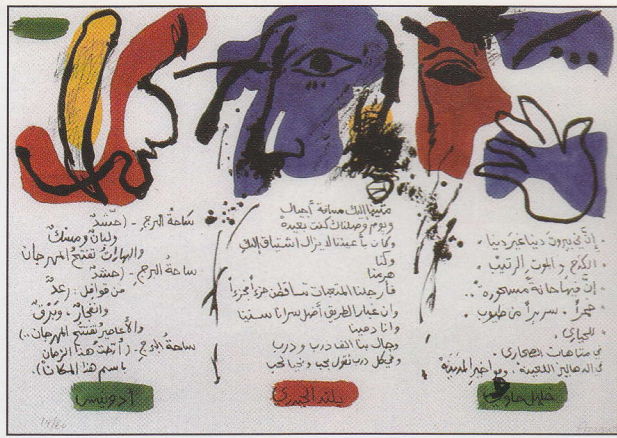 إنّ في بيروت دنيا غير دنيا
الكدح والموت الرتيب
إنّ فيها حانة مسحورة
خمراً، سريراً من طيوب
للحيارى
في متاهات الصحارى
في الدهاليز اللعينة
خليل حاوي
متيهاً إليك مسافة أجيال
ويوم وصلناك كنت بعيدة
وكان بأعيننا لا يزال اشتياق إليك
وكنا
هرمنا
فأرجلنا المتعبات تساقطن جزءاً فجزءاً
وأن غبار الطريق أضل سرانا سنينا
وأنا دمينا
وجال بنا ألف درب ودرب
وفي كل درب نقول نحب ونحيا لحب
بلند الحيدري
ساحة البرج - (حشدٌ
ولبانٌ ومسكٌ
والبهارات تفتتح المهرجان
ساحة البرج - (حشدٌ
من قوافل: رعدٌ
وانفجارٌ، وبرقٌ
والأعاصير تفتتح المهرجان..)
ساحة البرج - (أرّختُ هذا الزمان
باسم هذا المكان).
أدونيس